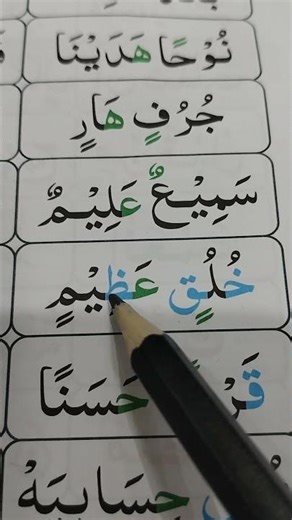 نُوْحًا هَدَيْنَا
جُرُفٍ هَارٍ
سَمِيْعٌ عَلِيْمٌ
خُلُقٍ عَظِيْمٍ
حَسَنًا
حِسَابِيَهْ